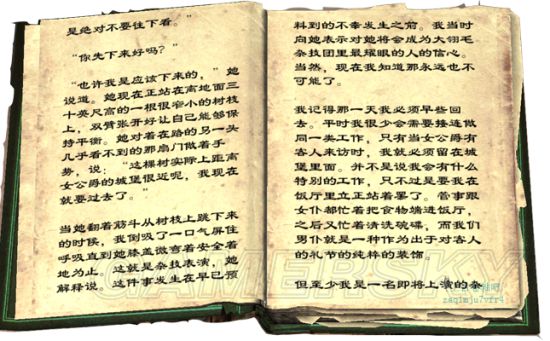 是绝对不要往下看。”
“你先下来好吗？”
“也许我是应该下来的，”她
说道。她现在正站在离地面三
十英尺高的一根很窄小的树枝
上，双臂张开好让自己能够保
持平衡。她对着在路的另一头
几乎看不到的那扇门做着手
势，说：“这棵树实际上距离
女公爵的城堡很近呢，我现在
就要过去了。”
当她翻着筋斗从树枝上跳下来
的时候，我倒吸了一口气屏住
呼吸直到她膝盖微弯着安全着
地为止。这就是杂技表演，她
解释说。这件事发生在早已预
料到的不幸发生之前，我当时
向她表示对她将会成为大翎毛
杂技团里最耀眼的人的信心。
当然，现在我知道那永远也不
可能了。
我记得那一天我必须早些回
去。平时我很少会需要接连做
同一类工作，只有当女公爵有
客人来访时，我就必须留在城
堡里面。并不是说我会有什么
特别的工作，只不过是要我在
饭厅里立正站着罢了。管事跟
女仆都忙着把食物端进饭厅，
之后又忙着清洗碗碟，而我们
男仆就是一种作为出于对客人
的礼节的纯粹的装饰。
但至少我是一名即将上演的杂
GAMERSKY
zaqimju7vfr4